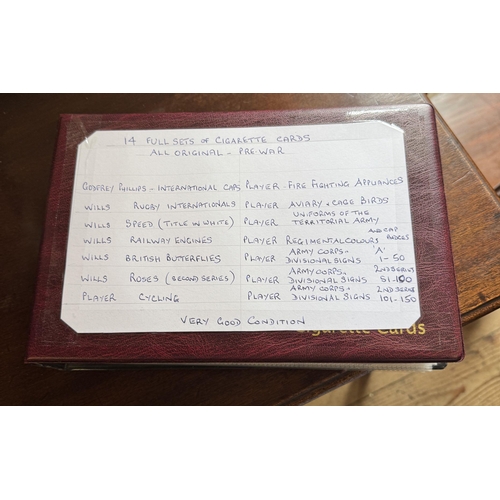 14 FULL SETS OF CIGARETTE CARDS
ALL ORIGINAL - PRE-WAR
GODFREY PHILLIPS - INTERNATIONAL CAPS PLAYER - FIRE FIGHTING APPLIANCES
WILLS RUGBY INTERNATIONALS PLAYER AVIARY & CAGE BIRDS
WILLS SPEED (TITLE IN WHITE) PLAYER UNIFORMS OF THE TERRITORIAL ARMY
WILLS RAILWAY ENGINES PLAYER REGIMENTAL COLOURS AND CAP BADGES
WILLS BRITISH BUTTERFLIES PLAYER ARMY CORPS & DIVISIONAL SIGNS 'A' 1-50
WILLS ROSES (SECOND SERIES) PLAYER ARMY CORPS & DIVISIONAL SIGNS 2ND SERIES 51-100
PLAYER CYCLING PLAYER ARMY CORPS & DIVISIONAL SIGNS 2ND SERIES 101-150
VERY GOOD CONDITION
Cigarette Cards